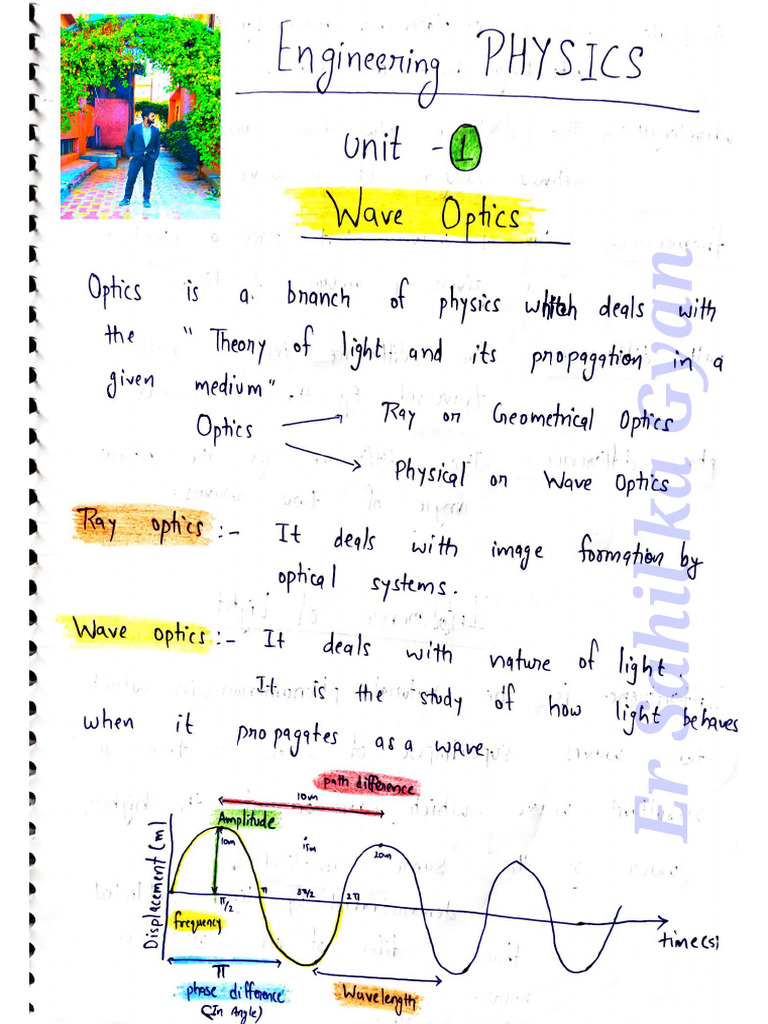 Engineering PHYSICS
Unit - 1
Wave Optics
Optics is a branch of physics which deals with
the " Theory of light and its propagation in a
given medium".
Optics
Ray or Geometrical Optics
Physical or Wave Optics
Ray optics :- It deals with image formation by
optical systems.
Wave optics :- It deals with nature of light.
It is the study of how light behaves
when it propagates as a wave
path difference
10m
Amplitude
10m
15m
20m
Displacement (m)
π/2
π
3π/2
2π
frequency
time(s)
π
phase difference
(In Angle)
Wavelength
Er Sahil ka Gyan